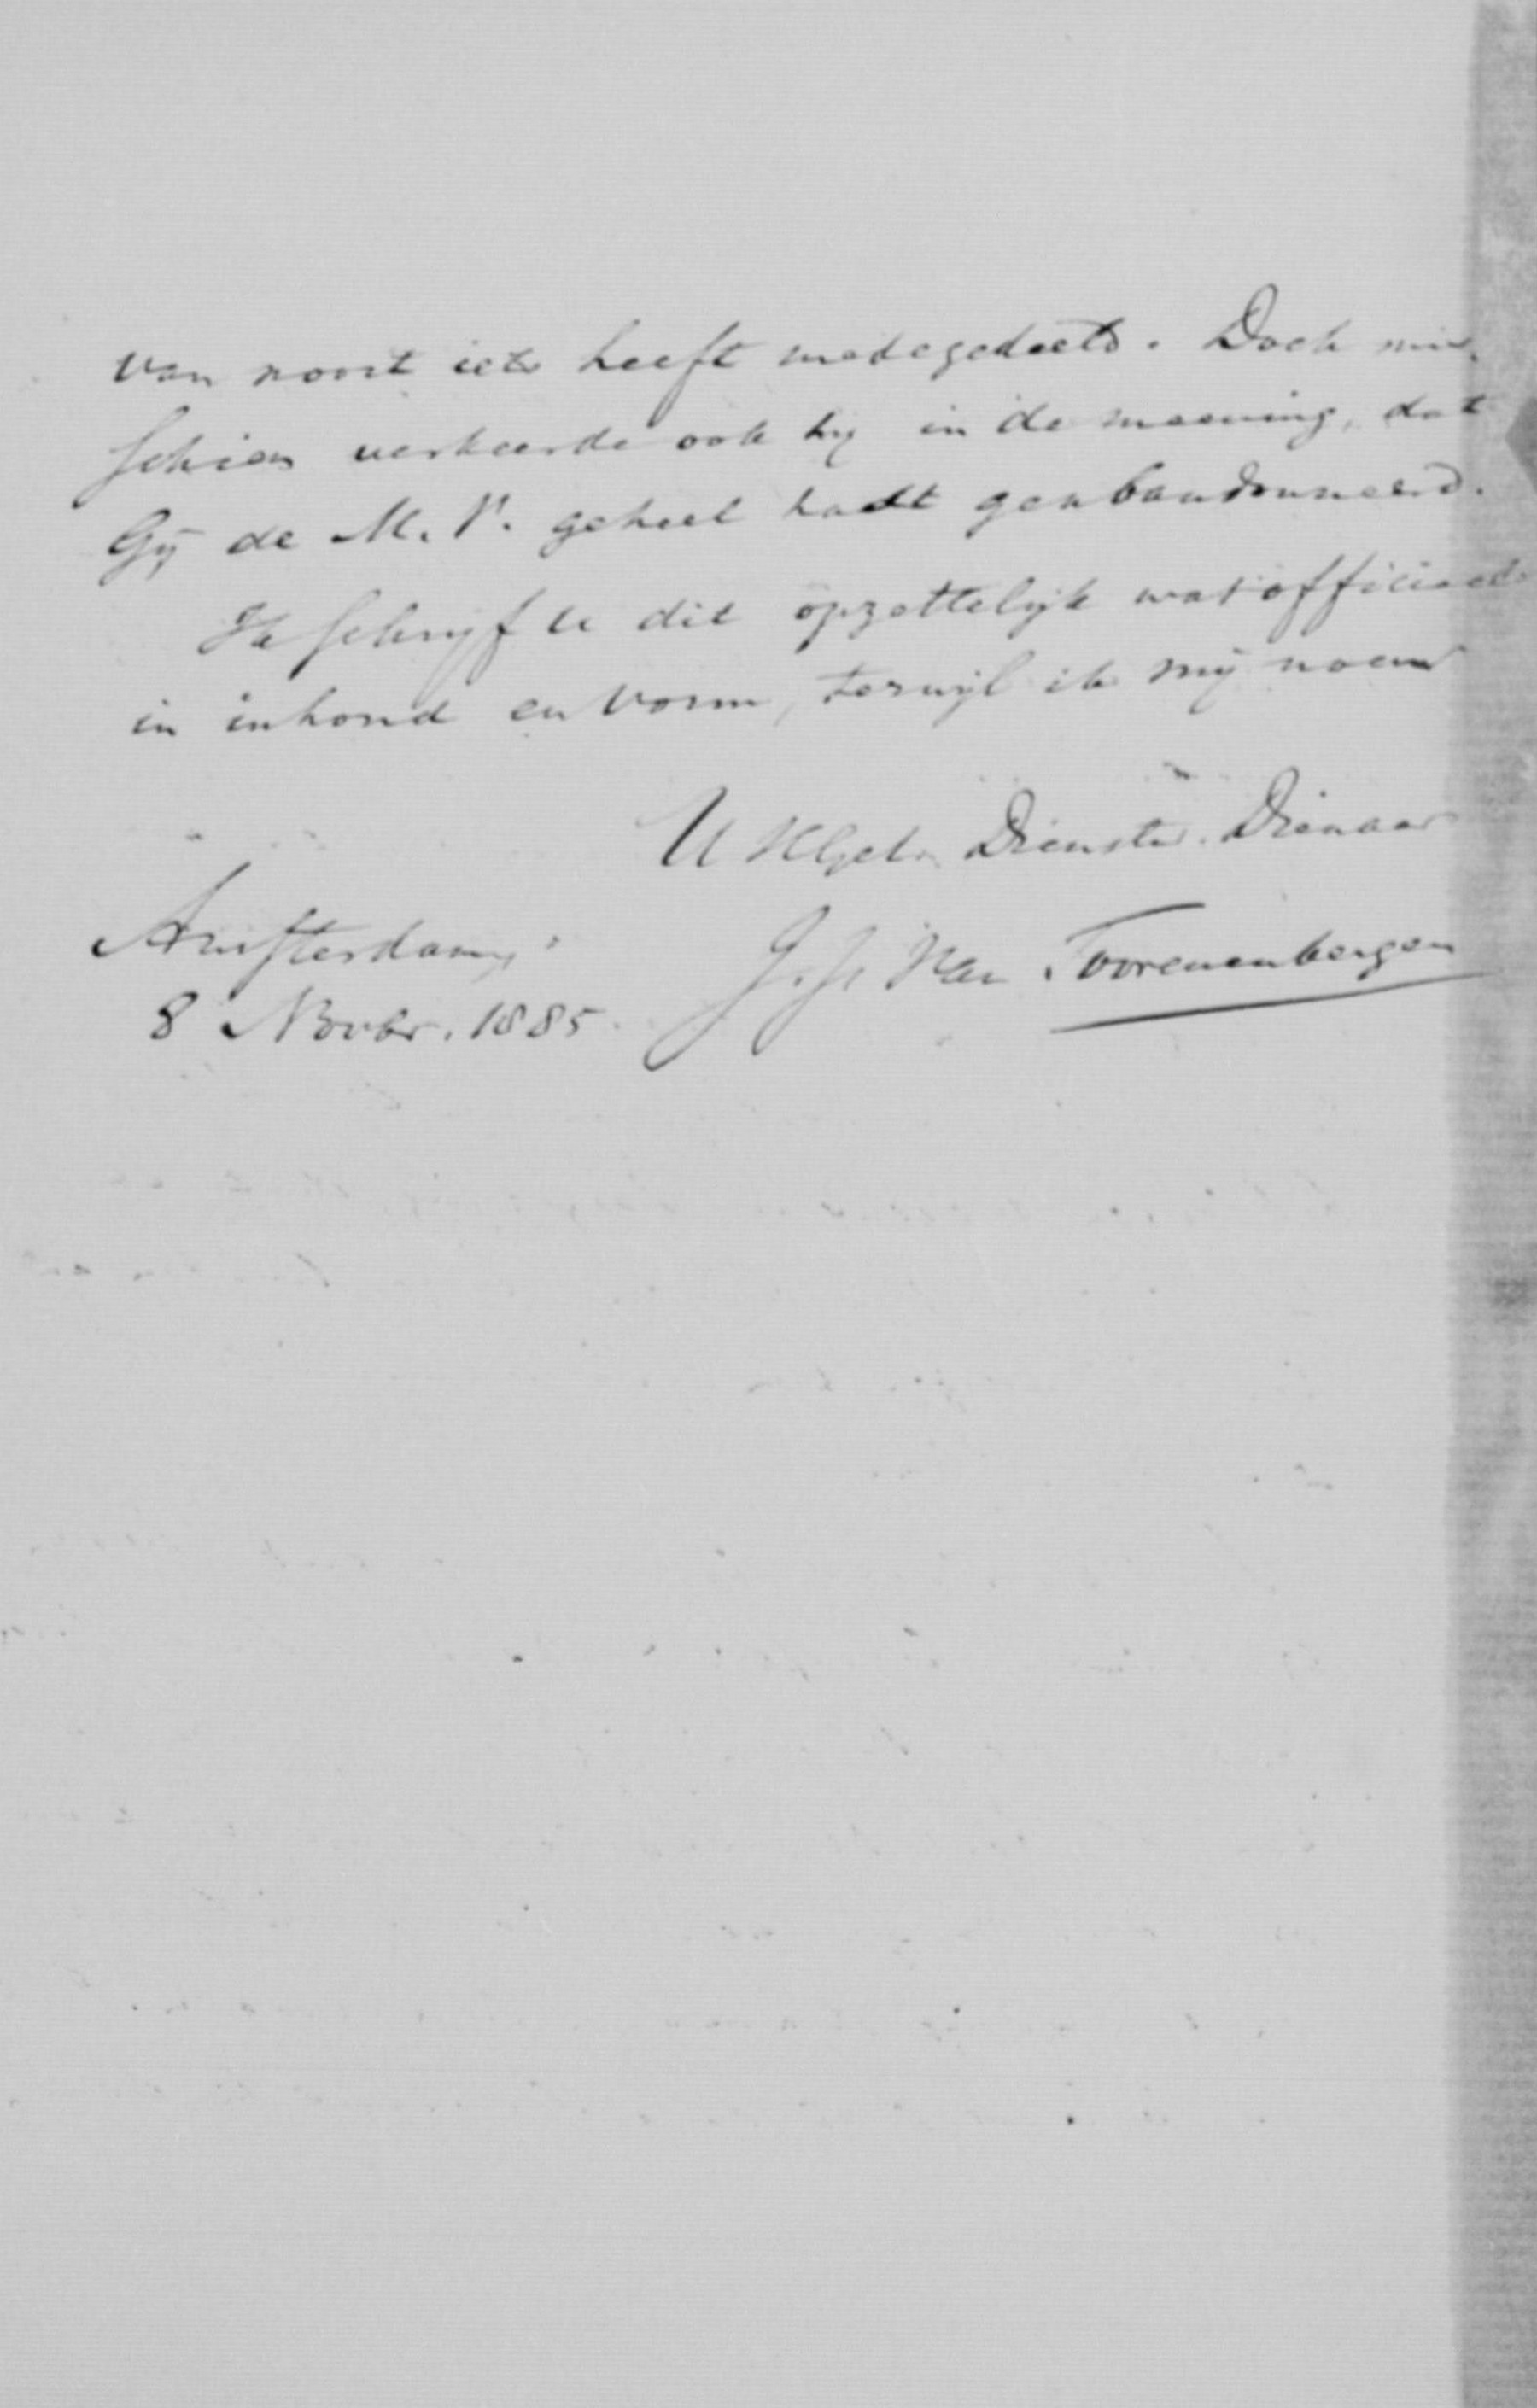 van nooit iets heeft medegedeeld. Doch mis-
schien verkeerde ook hij in de meening, dat
Gij de M. V. geheel hadt geabandonneerd.
Ik schrijf U dit opzettelijk wat officieel
in inhoud en vorm, terwijl ik mij noem
U HGel. Dienstw. Dienaar
Amsterdam, J. J. Van Toorenenbergen
8 Novbr. 1885.